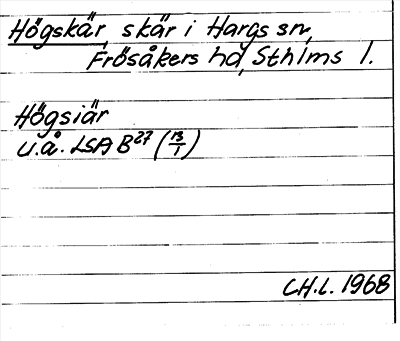 Högskär, skär i Hargs sn,
Frösåkers hd, Sthlms l.
Högsiär
u.å. LSA B27 (13/1)
CH.L. 1968